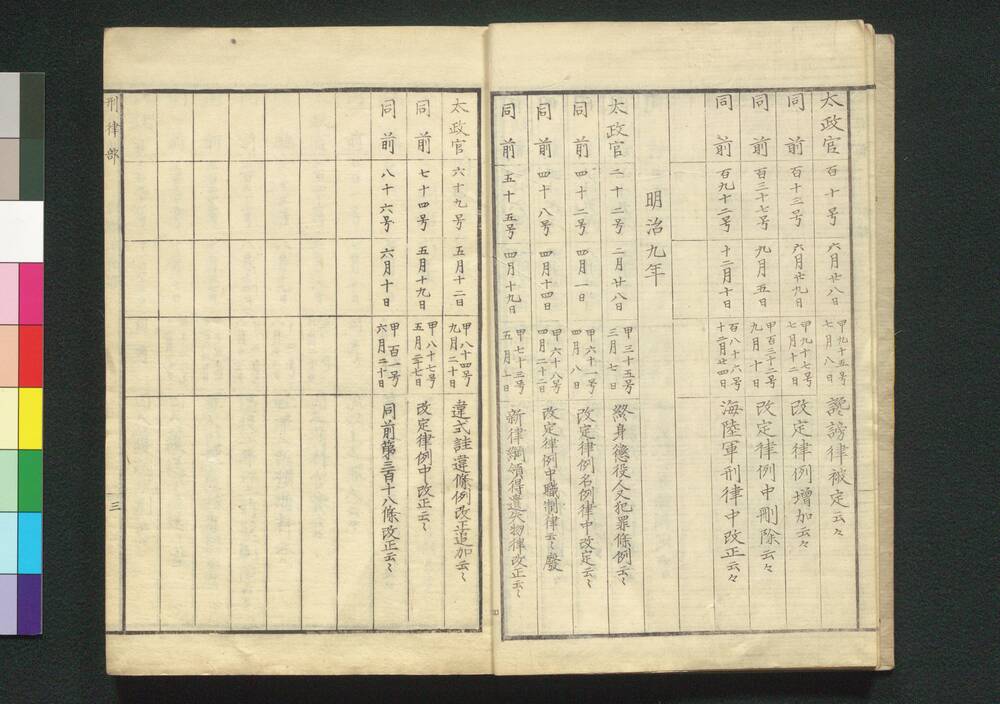 太政官 百十号 六月廿八日 甲九十五号 七月八日 讒謗律被定云々
同前 百十三号 六月廿九日 甲九十七号 七月十二日 改定律例増加云々
同前 百三十七号 九月五日 甲百三十二号 九月十日 改定律例中刪除云々
同前 百九十二号 十二月十日 百八十六号 十二月廿四日 海陸軍刑律中改正云々
明治九年
太政官 二十二号 二月廿八日 甲三十五号 三月七日 終身懲役人又犯罪條例云々
同前 四十二号 四月一日 甲六十一号 四月八日 改定律例名例律中改定云々
同前 四十八号 四月十四日 甲六十八号 四月二十二日 改定律例中職制律云々廢
同前 五十五号 四月十九日 甲七十三号 五月一日 新律綱領得遺失物律改正云々
太政官 六十九号 五月十二日 甲八十四号 九月二十日 違式詿違條例改正追加云々
同前 七十四号 五月十九日 甲八十七号 五月二七日 改定律例中改正云々
同前 八十六号 六月十日 甲百一号 六月二十日 同前第三百十八條改正云々
刑律部
三